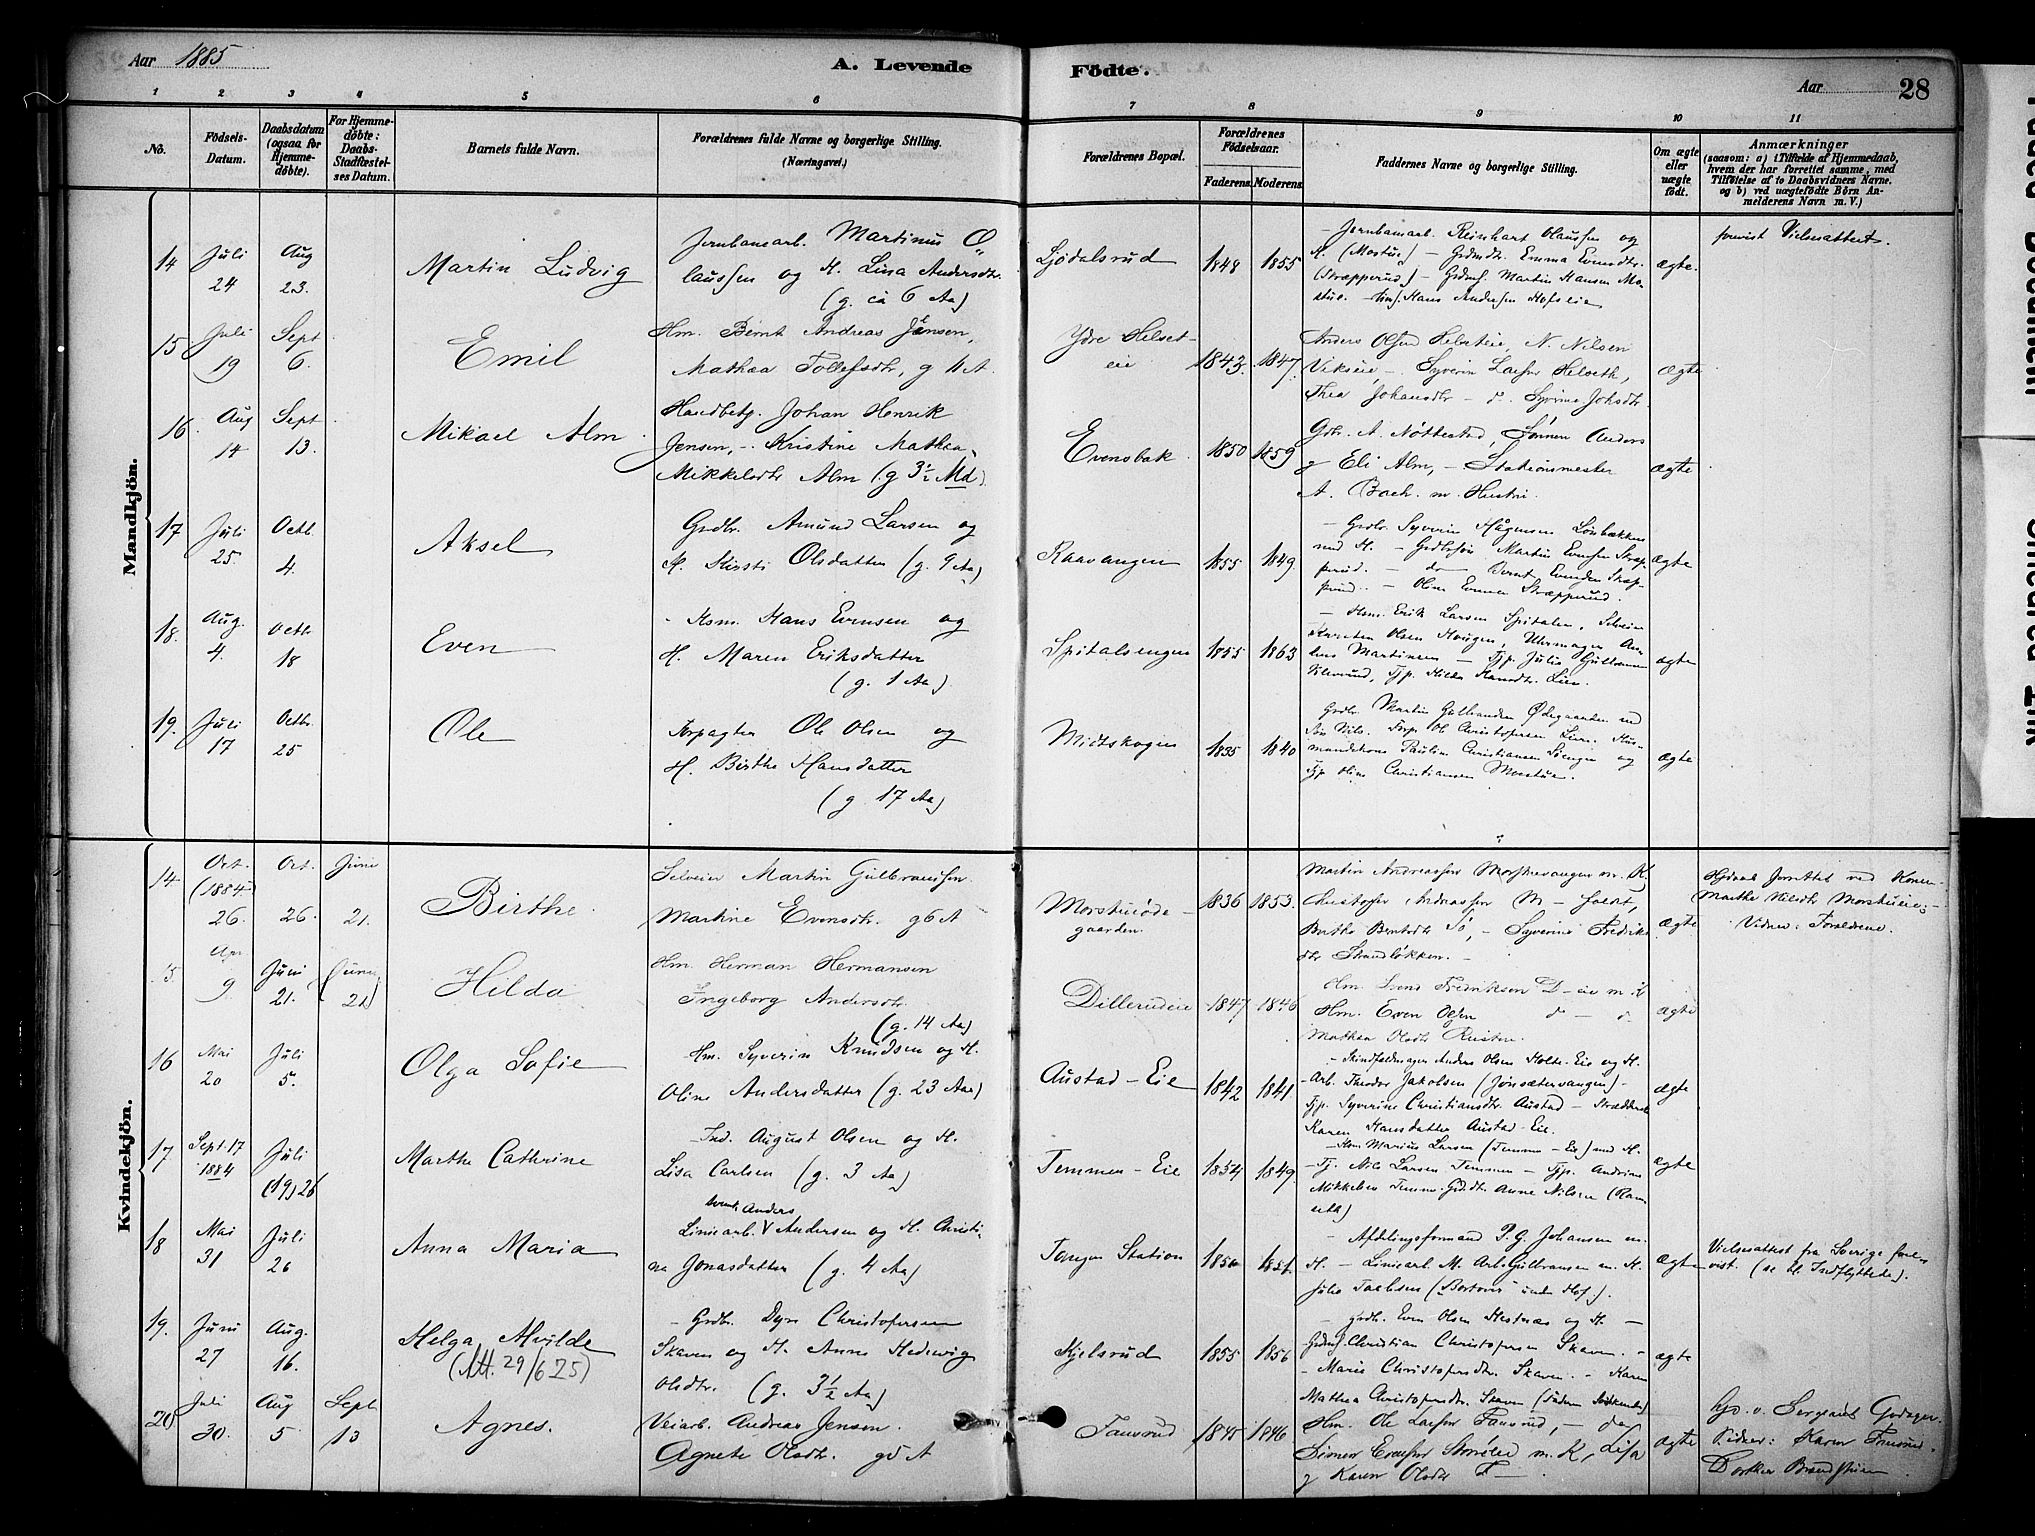 Aar 1885
A. Levende
Födte.
Aar
28
1 2 3 4 5 6 7 8 9 10 11
No.
Födsels-
Datum.
Daabsdatum
(ogsaa for
Hjemme-
döbte).
For Hjemme-
döbte:
Daabs-
Stadfæstel-
ses Datum.
Barnets fulde Navn.
Forældrenes fulde Navne og borgerlige Stilling.
(Næringsvei.)
Forældrenes Bopæl.
Forældrenes
Födselsaar.
Faderens.
Moderens.
Faddernes Navne og borgerlige Stilling.
Om ægte
eller
uægte
födt.
Anmærkninger
(saasom: a) i Tilfælde af Hjemmedaab,
hvem der har forrettet samme, med
Tilföielse af to Daabsvidners Navne,
og b) ved uægtefödte Börn An-
melderens Navn m. V.)
Mandkjön.
14 Juli 24 Aug 23.
Martin Ludvig
Jernbanearb. Martinus O
laussen og H. Lisa Andersdtr.
(g. ca 6 Aa)
Ljödalsrud
1848 1855
Jernbanearb. Reinhart Olaussen og
H. (Mostue) – Grdmdtr. Emma Evensdtr.
(Stræpperud) – Grdmf. Martin Hansen Mo-
stue. Hans Andersen Hofseie
ægte.
forevist Vielsesattest.
15 Juli 19 Sept 6.
Emil
Hm. Bernt Andreas Jensen,
Mathea Tollefsdtr, g 11 A.
Ydre Helset-
eie
1843. 1847.
Anders Olsen Helseteie, N. Nilsen
Vikseie – Syverin Larsen Helseth,
Thea Johansdtr – d. Syverine Johsdtr
ægte
16. Aug 14 Sept 13.
Mikael Alm.
Handbetj. Johan Henrik
Jensen, – Kristine Mathea
Mikkelsdtr Alm (g 3½ Md)
Evensbak.
1850 1859
Gdr. A. Nöttestad, Sönnen Anders
g Eli Alm, – Stationsmester
A. Bach m. Hustru.
ægte
17 Juli 25. Octb. 4.
Aksel
Grdbr. Amund Larsen og
H. Kirsti Olsdatter (g. 9 Aa)
Raavangen
1855 1849.
Grdbr. Syverin Hågensen Lönbækken
med H. – Grdbrsön Martin Evensen Stræp-
perud. – do Bernt Evensen Stræp-
perud. – Oline Evensen Stræpperud.
ægte
18. Aug. 4. Octbr 18
Even
Hsm. Hans Evensen og
H. Maren Eriksdatter
(g. 1 Aa).
Spitalsengen
1855 1863
Hsm. Erik Larsen Spitalen, Selveier
Karsten Olsen Haugen, Uhrmager An-
ders Martinsen – Tjp. Julie Gulbrandsen
Kleverud, Tjp. Hilda Hansdtr. Lien.
ægte
19. Juli 17 Octbr. 25
Ole
Forpagter Ole Olsen og
H. Birthe Hansdatter
(g. 17 Aa)
Midtskogen
1835 1840
Grdbr. Martin Gulbrandsen Ödegaarden med
Sön Nils. Forp. Ole Christofersen Lien. Hus-
mandskone Pauline Christiansen Sörengen og
Tjp Oline Christiansen Morstue.
ægte
Kvindekjön.
14 Oct. (1884) 26 Oct. 26. Juni 21.
Birthe.
Selveier Martin Gulbranssen.
Martine Evensdtr. g 6 A
Morstueöde-
gaarden.
1836 1853.
Martin Andreassen Morstuevangen m. K
Christofer Andreassen M – foldt,
Berthe Berntsdtr So, – Syverine Fredriks
dtr Strandlökken. –
ægte
Hjdaab forrettet ved Konen
Marthe Nilsdtr Morstueeie; –
Vidner: Forældrene.
5 Apr 9 Juni 21. (Juni 21)
Hilda
Hm. Herman Hermansen
Ingeborg Andersdtr.
(g. 14 Aa)
Dillerudeie
1847 1846
Hm. Svend Fredriksen D–eie m. K
Hm. Even Olsen d – d.
Mathea Olsdtr Rustne.
ægte
16 Mai 20 Juli 5.
Olga Sofie
Hm. Syverin Knudsen og H.
Oline Andersdatter (g. 23 Aa)
Austad-Eie
1842 1841
Skindfeldmager Anders Olsen Holte-Eie og H.
Arb. Theodor Jakobsen (Jönsætervangen) –
Tjp. Syverine Christiansdtr. Austad – Strædderske
Karen Hansdatter Austad-Eie.
ægte
17 Sept. 17 1884 Juli (19) 26
Marthe Cathrine
Ind. August Olsen og H.
Lisa Carlsen (g. 3 Aa)
Temmen-Eie
1854 1849.
Hsm. Marius Larsen (Temmen-Eie) med H.
Tj. Nils Larsen Temmen – Tjp. Andrine
Mikkelsen Temmen. Grdt. Anne Nilsen (Ram
seth)
ægte
18 Mai 31 Juli 26
Anna Maria
Anders
Liniearb. V Andersen og H. Christi-
na Jonasdatter (g. 4 Aa)
Tangen Station
1850 1851.
Afdelingsformand P. G. Johansen m.
H. – Liniearb. M. Arb. Gulbransen m. H.
Julie Paulsen (Bortover under Hof.).
ægte
Vielsesattest fra Sverige fore-
vist. (se bl. Indflyttede).
19. Juni 27 Aug. 16.
Helga Alvilde
(Att. 29/6 25)
Grdbr. Dyre Christofersen
Skaven og H. Anne Hedevig
Olsdtr. (g. 3½ Aa)
Kjelsrud
1855 1856
Grdbr. Even Olsen Hestnæs og H –
Grdmf. Christian Christofersen Skaven. –
Marie Christofersdtr. Skaven. – Karen
Mathea Christofersdtr. Skaven
ægte
20 Juli 30. Aug 5 Sept 13
Agnes.
Veiarb. Andreas Jensen.
Agnete Olsdtr. g 5 A
Fausrud
1845 1846
Hm. Ole Larsen Fausrud, – d
Simen Evensen Stenslie m. K, Lisa
g Karen Olsdtr F –
ægte
hjd. v. Sergeant Godager.
Vidner: Karen Fausrud.
Dorthea Brændstuen.